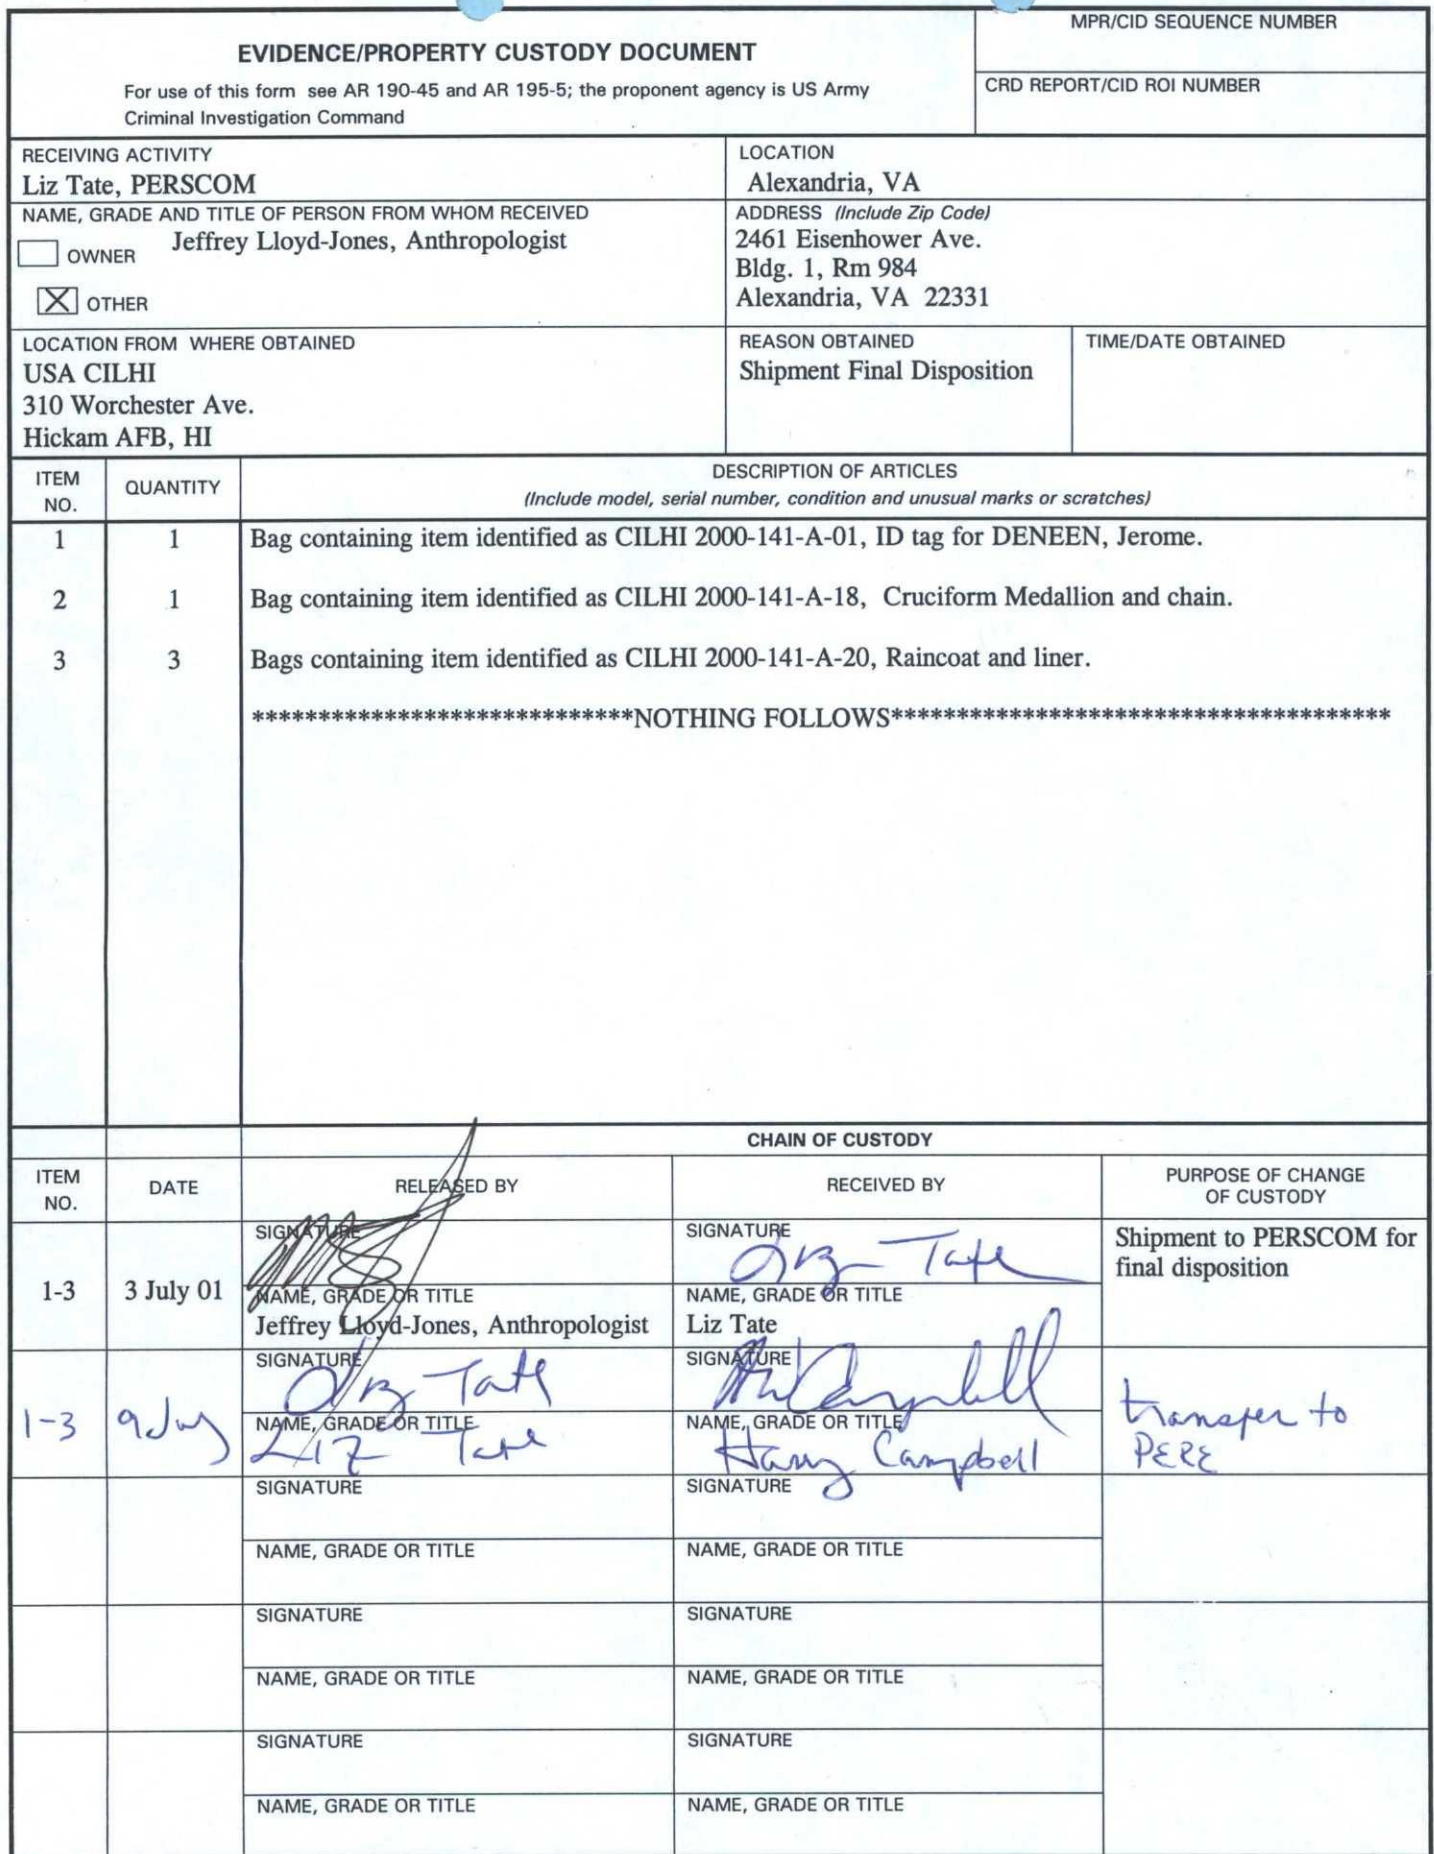 MPR/CID SEQUENCE NUMBER
EVIDENCE/PROPERTY CUSTODY DOCUMENT
For use of this form see AR 190-45 and AR 195-5; the proponent agency is US Army
Criminal Investigation Command
CRD REPORT/CID ROI NUMBER
RECEIVING ACTIVITY
Liz Tate, PERSCOM
LOCATION
Alexandria, VA
NAME, GRADE AND TITLE OF PERSON FROM WHOM RECEIVED
OWNER Jeffrey Lloyd-Jones, Anthropologist
X OTHER
ADDRESS (Include Zip Code)
2461 Eisenhower Ave.
Bldg. 1, Rm 984
Alexandria, VA 22331
LOCATION FROM WHERE OBTAINED
USA CILHI
310 Worchester Ave.
Hickam AFB, HI
REASON OBTAINED
Shipment Final Disposition
TIME/DATE OBTAINED
ITEM NO. QUANTITY DESCRIPTION OF ARTICLES
(Include model, serial number, condition and unusual marks or scratches)
1 1 Bag containing item identified as CILHI 2000-141-A-01, ID tag for DENEEN, Jerome.
2 1 Bag containing item identified as CILHI 2000-141-A-18, Cruciform Medallion and chain.
3 3 Bags containing item identified as CILHI 2000-141-A-20, Raincoat and liner.
*****************************NOTHING FOLLOWS**************************************
CHAIN OF CUSTODY
ITEM NO. DATE RELEASED BY RECEIVED BY PURPOSE OF CHANGE OF CUSTODY
1-3 3 July 01
SIGNATURE
NAME, GRADE OR TITLE
Jeffrey Lloyd-Jones, Anthropologist
SIGNATURE
Liz Tate
NAME, GRADE OR TITLE
Liz Tate
Shipment to PERSCOM for
final disposition
1-3 9 July
SIGNATURE
Liz Tate
NAME, GRADE OR TITLE
Liz Tate
SIGNATURE
Campbell
NAME, GRADE OR TITLE
Harry Campbell
transfer to
PERE
SIGNATURE
NAME, GRADE OR TITLE
SIGNATURE
NAME, GRADE OR TITLE
SIGNATURE
NAME, GRADE OR TITLE
SIGNATURE
NAME, GRADE OR TITLE
SIGNATURE
NAME, GRADE OR TITLE
SIGNATURE
NAME, GRADE OR TITLE